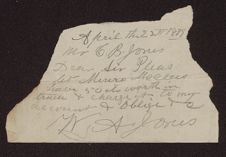 April the 22nd 1878
Mr C B Jones
Dear Sir Pleas
let Minero
have 50 cts worth in
trade & charge to my
account & Oblige &c
W. A. Jones